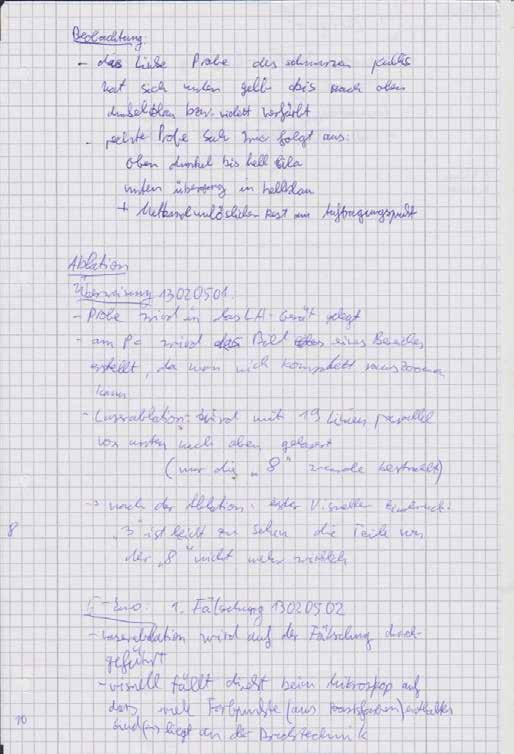 Beobachtung:
- das linke Probe des schwarzen Kulis
hat sich unten gelb bis nach oben
dunkelblau bzw. violett verfärbt
- rechte Probe sah wie folgt aus:
oben dunkel bis hell lila
unten übergang in hellblau
+ Methanolunlöslichen Rest am Auftragungspunkt
Ablation
Überweisung 13020501:
- Probe wird in das LA-Gerät gelegt
- am PC wird das Bild eines Bereiches
erstellt, da man nicht komplett rauszoomen
kann
- Laserablation: wird mit 19 Linien parallel
von unten nach oben gelasert
(nur die "8" wurde bestrahlt)
-> nach der Ablation: erster Visueller Eindruck:
"3" ist leicht zu sehen die Teile von
der "8" nicht mehr wirklich
8
5-Euro: 1. Fälschung 13020502
- Laserablation wird auf der Fälschung durch-
geführt
- visuell fällt direkt beim Mikroskop auf
dass viele Farbpunkte (aus
sind (es liegt an der Drucktechnik
10